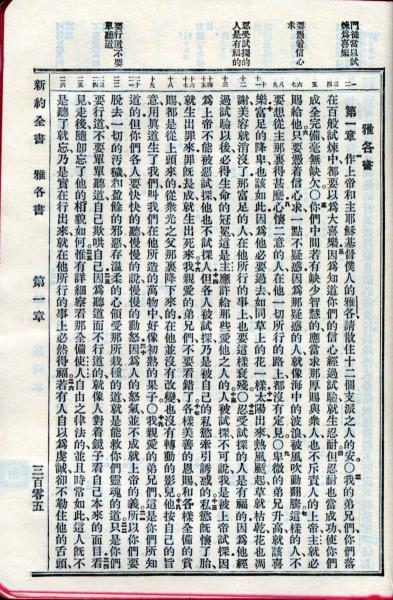 門徒當以試
煉為喜樂
要憑着信心
求
忍受試探的
人是有福的
要行道不要
單聽道
雅各書
第一章 作上帝和主耶穌基督僕人的雅各請散住十二個支派之人的安〇我的弟兄們你們落
在百般試煉中都要以為大喜樂因為知道你們的信心經過試驗就生忍耐但忍耐也當成功使你們
成全完備毫無缺欠〇你們中間若有缺少智慧的應當求那厚賜與衆人也不斥責人的上帝主就必
賜給他只要憑着信心求一點不疑惑因為那疑惑的人就像海中的波浪被風吹動翻騰這樣的人不
要想從主那裏得甚麼心懷二意的人在他一切所行的路上都沒有定見〇卑微的弟兄升高就該喜
樂富足的降卑也該如此因為他必要過去如同草上的花一樣太陽出來熱風颳起草就枯乾花也凋
謝美容就消沒了那富足的人在他所行的事上也要這樣衰殘〇忍受試探的人是有福的因為他經
過試驗以後必得生命的冠冕這是主應許給那些愛他之人的人被試探不可說我是被上帝試探因
為上帝不能被惡試探他也不試探人但各人被試探乃是被自己的私慾牽引誘惑的私慾既懷了胎
就生出罪來罪既長成就生出死來我親愛的弟兄們不要看錯了各樣美善的恩賜和各樣全備的賞
賜都是從上頭來的從衆光之父那裏降下來的在他並沒有改變也沒有轉動的影兒他按自己的旨
意用真道生了我們叫我們在他所造的萬物中好像初熟的果子〇我親愛的弟兄們這是你們所知
道的但你們各人要快快的聽慢慢的說慢慢的動怒因為人的怒氣並不成就上帝的義所以你們要
脫去一切的污穢和盈餘的邪惡存溫柔的心領受那所栽種的道就是能救你們靈魂的道只是你們
要行道不要單單聽道自己欺哄自己因為聽道而不行道的就像人對着鏡子看自己本來的面目看
見走後隨即忘了他的相貌如何惟有詳細察看那全備使人自由之律法的並且時常如此這人既不
是聽了就忘乃是實在行出來就在他所行的事上必然得福若有人自以為虔誠卻不勒住他的舌頭
新約全書 雅各書 第一章 三百零五